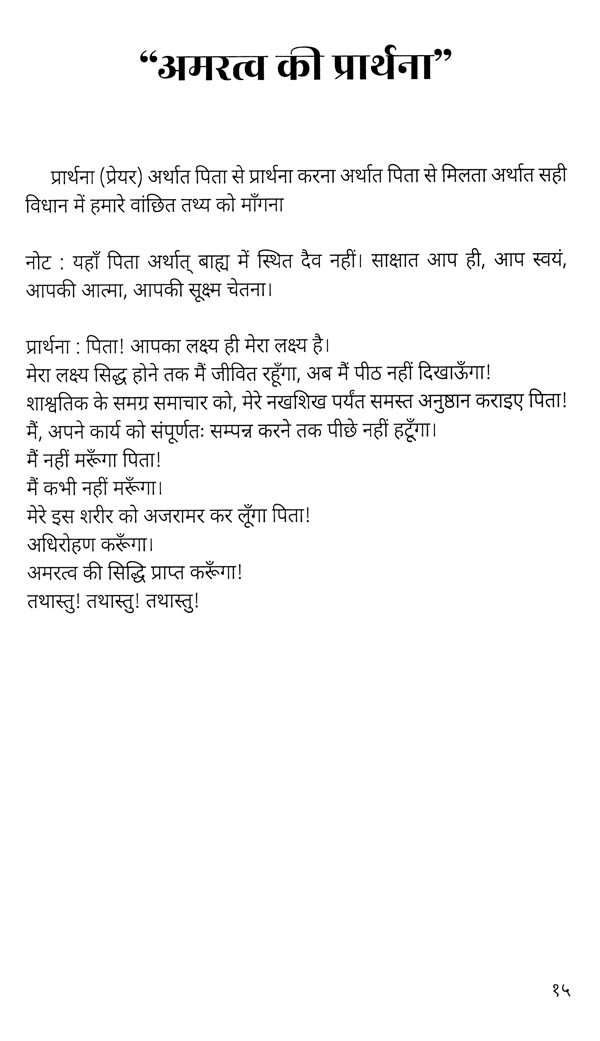 “अमरत्व की प्रार्थना”
प्रार्थना (प्रेयर) अर्थात पिता से प्रार्थना करना अर्थात पिता से मिलता अर्थात सही
विधान में हमारे वांछित तथ्य को माँगना
नोट : यहाँ पिता अर्थात् बाह्य में स्थित दैव नहीं। साक्षात आप ही, आप स्वयं,
आपकी आत्मा, आपकी सूक्ष्म चेतना।
प्रार्थना : पिता! आपका लक्ष्य ही मेरा लक्ष्य है।
मेरा लक्ष्य सिद्ध होने तक मैं जीवित रहूँगा, अब मैं पीठ नहीं दिखाऊँगा!
शाश्वतिक के समग्र समाचार को, मेरे नखशिख पर्यंत समस्त अनुष्ठान कराइए पिता!
मैं, अपने कार्य को संपूर्णतः सम्पन्न करने तक पीछे नहीं हटूँगा।
मैं नहीं मरूँगा पिता!
मैं कभी नहीं मरूँगा।
मेरे इस शरीर को अजरामर कर लूँगा पिता!
अधिरोहण करूँगा।
अमरत्व की सिद्धि प्राप्त करूँगा!
तथास्तु! तथास्तु! तथास्तु!
१५